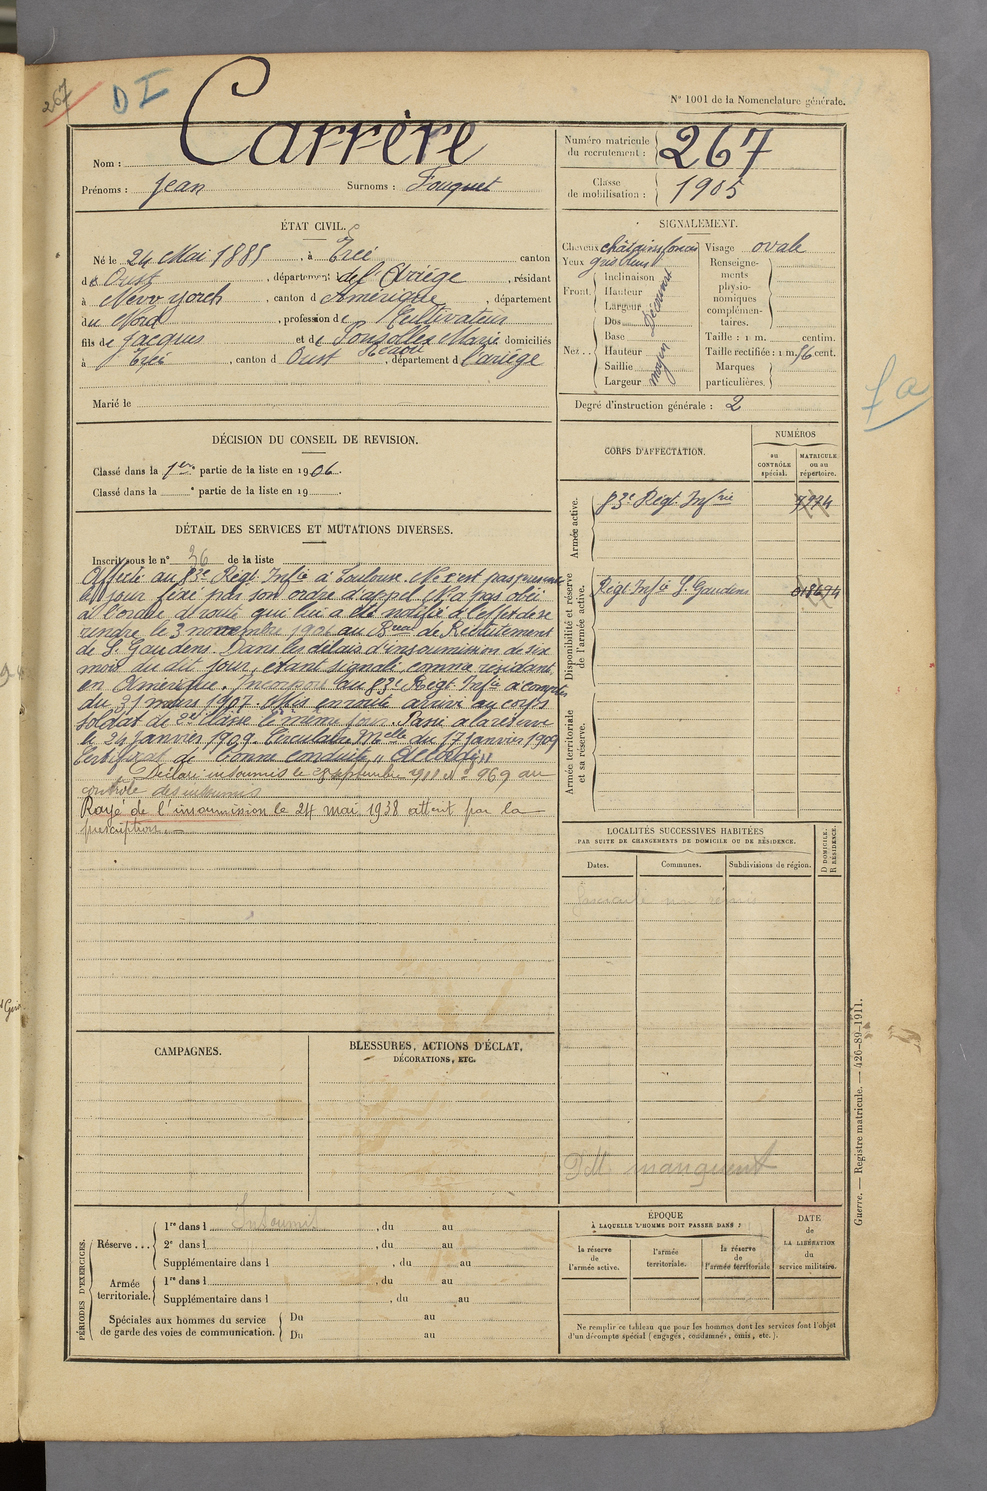 267
D I
N° 1001 de la Nomenclature générale.
Nom : Carrère
Prénoms : Jean Surnoms : Fouquet
Numéro matricule du recrutement : 267
Classe de mobilisation : 1905
ÉTAT CIVIL.
Né le 24 Mai 1885, à Ercé canton
de Oust, département de l'Ariège, résidant
à New yorck, canton d Amérique, département
du Nord, profession de Cultivateur
fils de Jacques et de Ponsolles Marie domiciliés
à Ercé, canton d Oust, département d l'ariège
Marié le
SIGNALEMENT.
Cheveux châtains foncés Visage ovale
Yeux gris bleus
Front. Inclinaison Hauteur Largeur découvert
Nez.. Dos Base Hauteur Saillie Largeur moyen
Renseignements physionomiques complémentaires.
Taille : 1 m. centim.
Taille rectifiée : 1 m. 56 cent.
Marques particulières.
Degré d'instruction générale : 2
fa
DÉCISION DU CONSEIL DE REVISION.
Classé dans la 1ère partie de la liste en 1906.
Classé dans la e partie de la liste en 19
CORPS D'AFFECTATION.
NUMÉROS
au CONTRÔLE spécial.
MATRICULE ou au répertoire.
Armée active.
83e Régt Infrie 7974
Disponibilité et réserve de l'armée active.
Régt Infie St Gaudens
Armée territoriale et sa réserve.
DÉTAIL DES SERVICES ET MUTATIONS DIVERSES.
Inscrit sous le n° 26 de la liste
Affecté au 83e Régt Infie à Toulouse. Ne s'est pas présenté
le jour fixé par son ordre d'appel N'a pas obéi
à l'ordre de route qui lui a été notifié à l'effet de se
rendre le 3 novembre 1906 au Bureau de Recrutement
de St Gaudens. Dans les délais d'insoumission de six
mois du dit jour, étant signalé comme résidant
en Amérique. Incorporé au 83e Régt Infie à compter
du 31 mars 1907. Mis en route arrivé au corps
soldat de 2e classe le même jour. Passé à la réserve
le 24 Janvier 1909. Circulaire Melle du 17 Janvier 1909
Certificat de bonne conduite "Accordé"
Déclaré insoumis le septembre 1911 N° 969 au
contrôle des insoumis
Rayé de l'insoumission le 24 mai 1938 atteint par la
prescription.
LOCALITÉS SUCCESSIVES HABITÉES
PAR SUITE DE CHANGEMENTS DE DOMICILE OU DE RÉSIDENCE.
Dates. Communes. Subdivisions de région. D DOMICILE. R RÉSIDENCE.
fascicule non remis
manquent
CAMPAGNES.
BLESSURES, ACTIONS D'ÉCLAT,
DÉCORATIONS, ETC.
PÉRIODES D'EXERCICES.
Réserve ...
1re dans l Insoumis, du au
2e dans l , du au
Supplémentaire dans l , du au
Armée territoriale.
1re dans l , du au
Supplémentaire dans l , du au
Spéciales aux hommes du service de garde des voies de communication.
Du au
Du au
ÉPOQUE
À LAQUELLE L'HOMME DOIT PASSER DANS :
la réserve de l'armée active.
l'armée territoriale.
la réserve de l'armée territoriale
DATE de LA LIBÉRATION du service militaire.
Ne remplir ce tableau que pour les hommes dont les services font l'objet
d'un décompte spécial (engagés, condamnés, omis, etc.).
Guerre. — Registre matricule. — 426-89-1911.